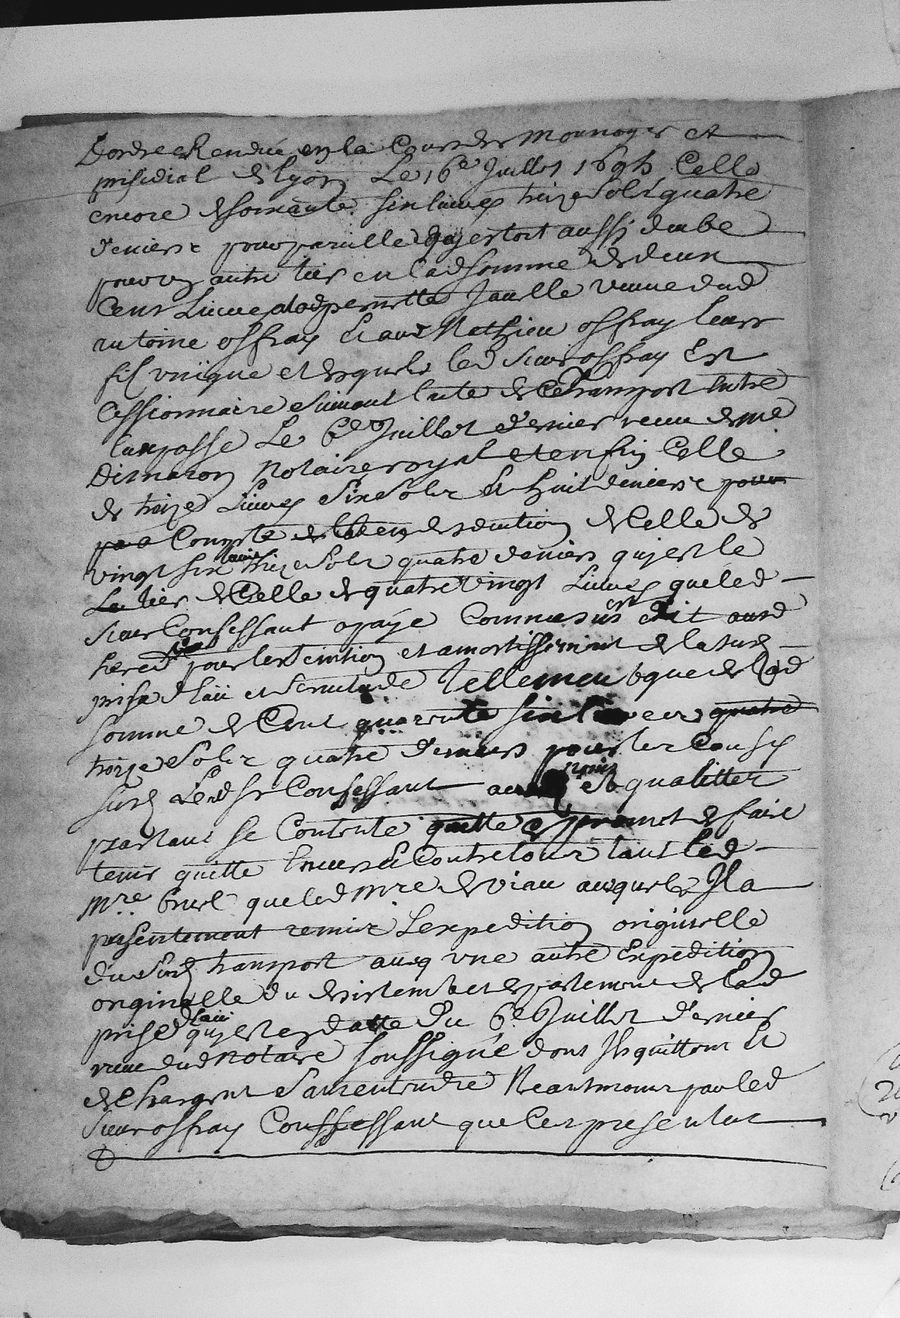 Dordre Rendue en la Cour des Monnoyes et
presidial de lyon Le 16e Juillet 1694 Celle
encore de soixante six livres treize sols quatre
deniers pour pareille quj estoit aussi deube
pour un autre tier en lad somme de deux
Cens Livres a lad pernette Jaselle veuve dud
antoine offray Et aud Mathieu offray leurs
fils unique et desquels led sieur offray Est
Cessionnaire suivant lacte de Transport entre
eux passe Le 6e Juillet dernier receu de me
Dimaron Notaire royal et enfin Celle
de treize Livres six sols et huit deniers pour
Compte de la redemption de Celle de
vingt six livres treize sols quatre deniers quj est le
tier de Celle de quatre vingt Livres que led
sieur Confessant a paye Comme sus est dit aud
hered pour lextemtion et amortissement de lasud
prise d'eau et servitude Tellement que de lad
somme de Cent quarente six livres
treize sols quatre deniers pour les Causes
susd Led Sr Confessant esd qualittes
partant se Contente quitte et promet de faire
tenir quitte Envers et Contre tous tant led
Mre Bruel que led Mre de Viau ausquels Il a
presentement remis Lexpedition originelle
du susd transport avec une autre Expedition
originelle du desistement et departement de lad
prise d'eau quj est en datte du 6e Juillet dernier
receue dud Notaire soussigné dont Ils quittent Et
dechargent sans entendre Neantmoins par led
sieur offray Confessant que Ces presentes